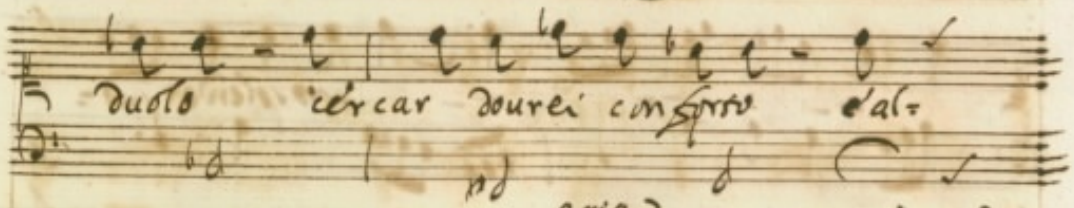 duolo cercar dourei conforto e al=